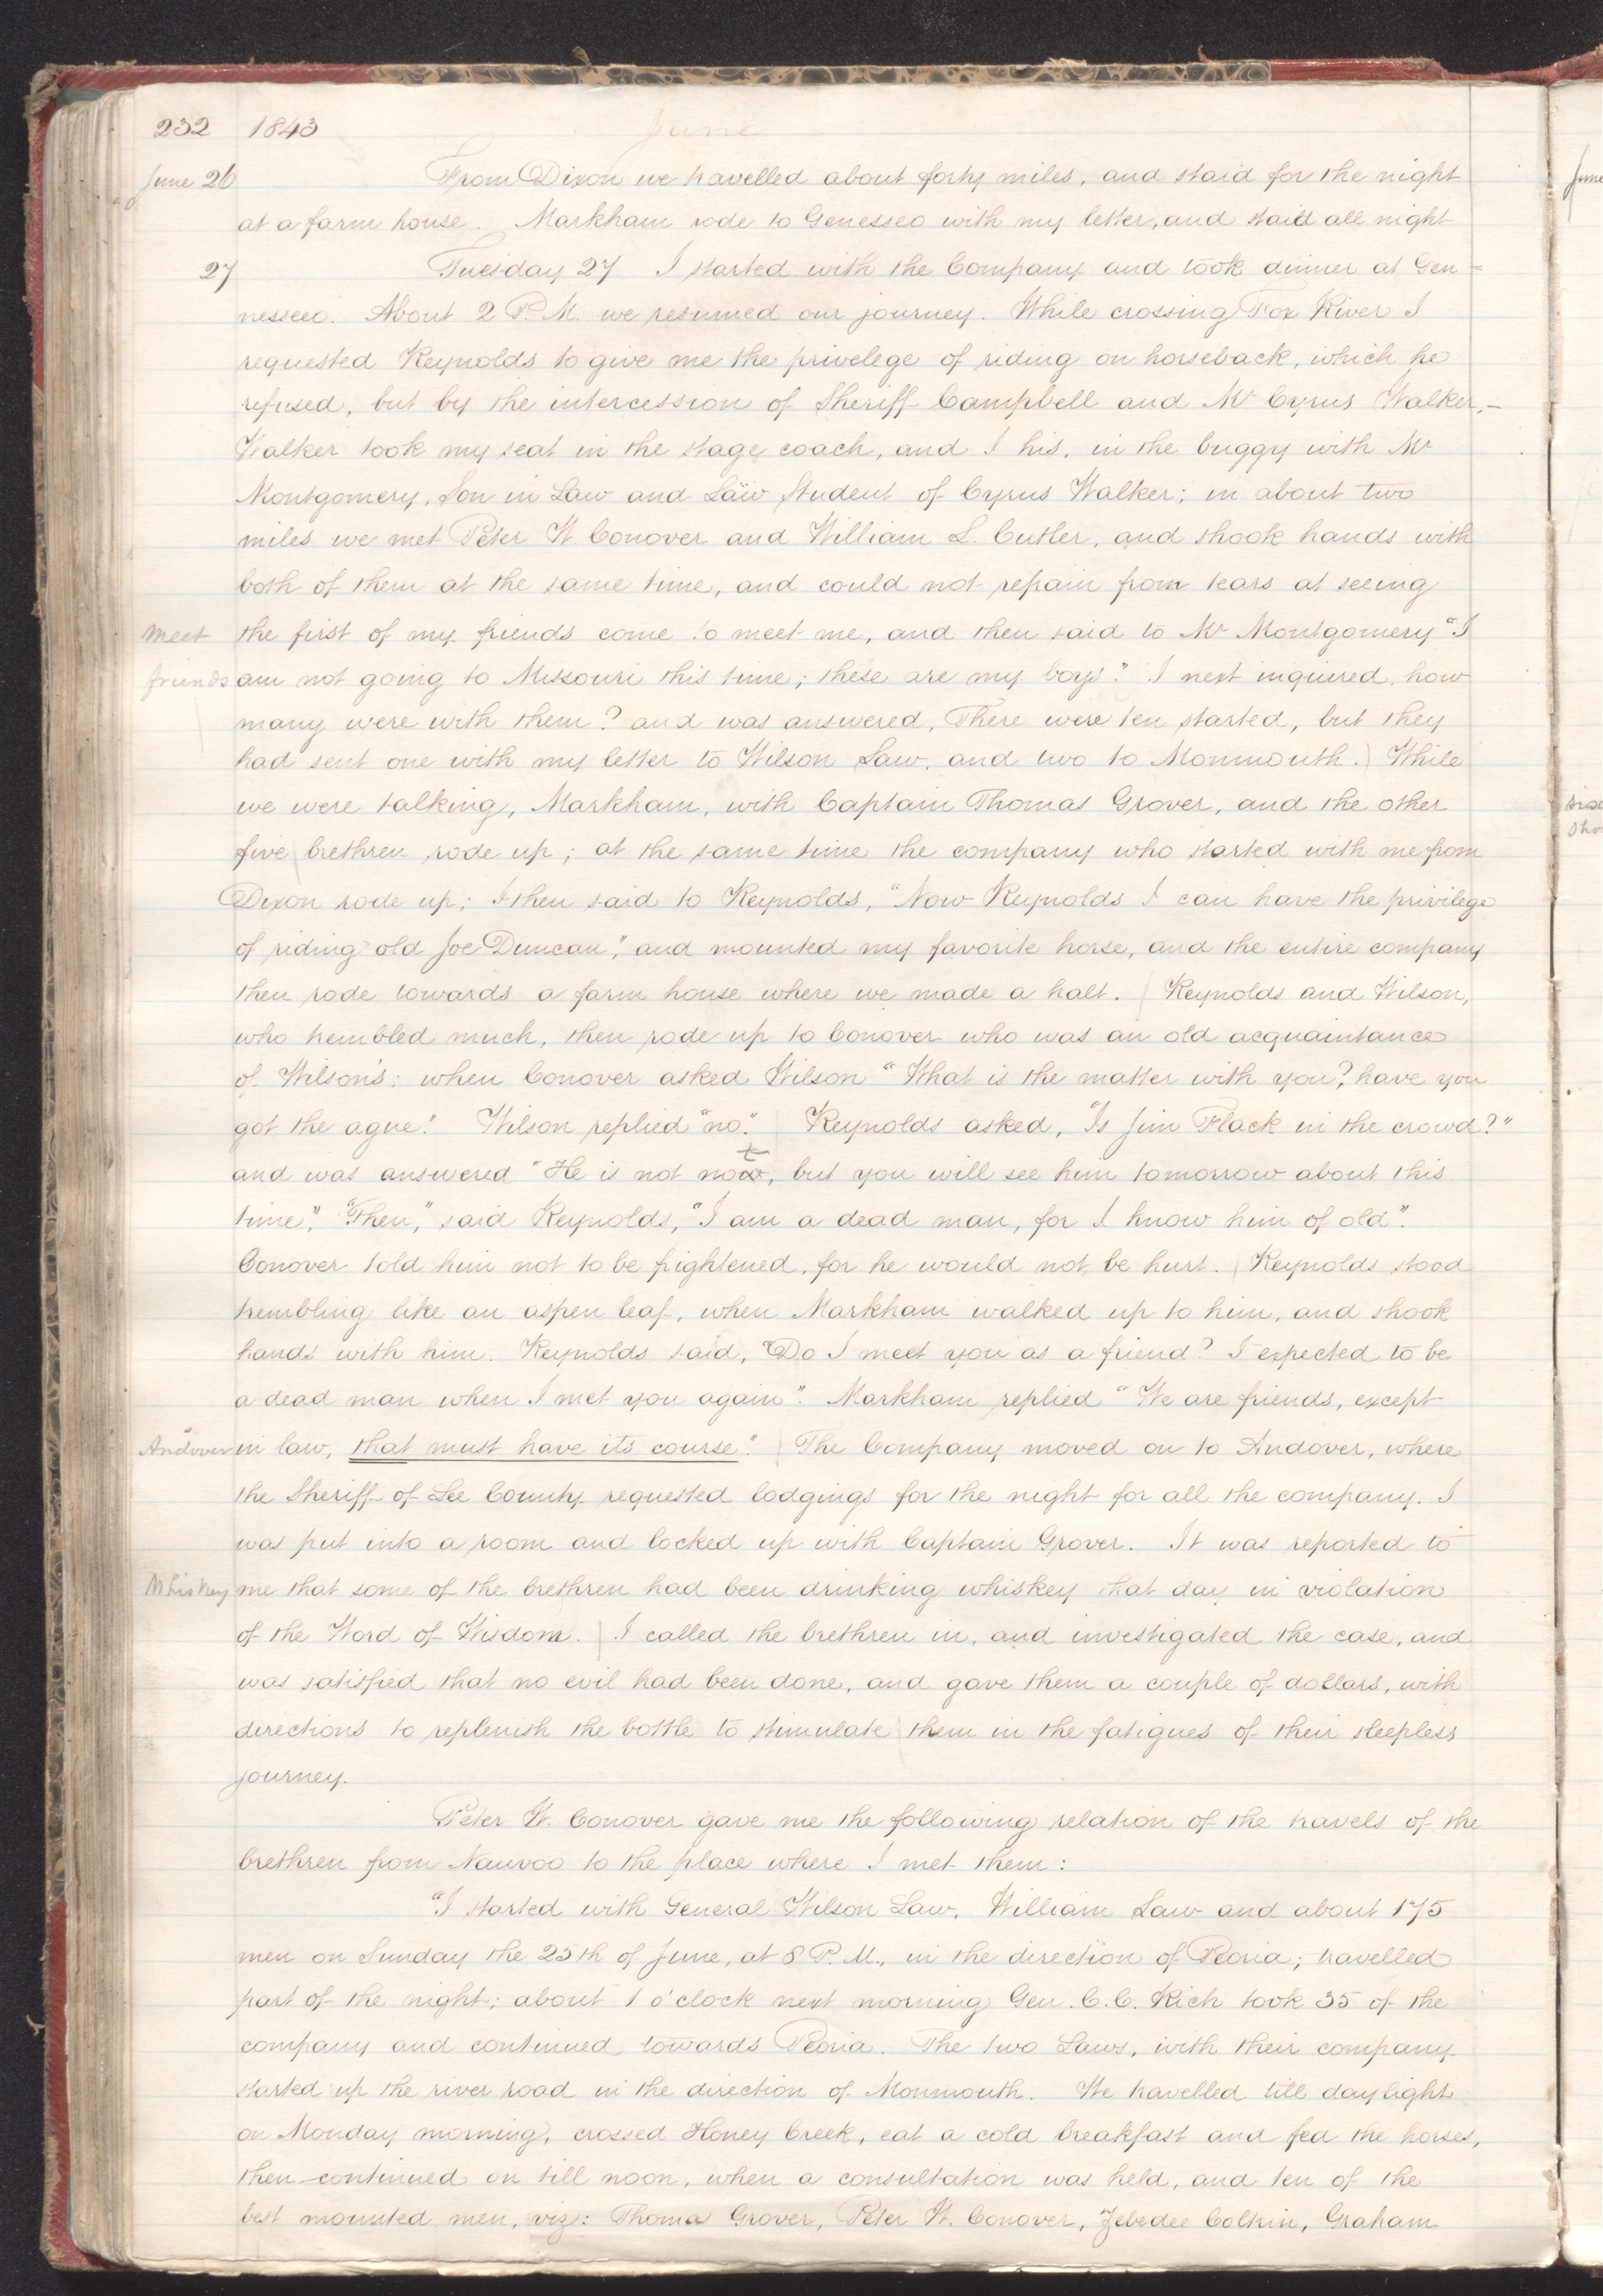 232 1843 June
June 26 From Dixon we travelled about forty miles, and staid for the night
at a farm house. Markham rode to Genesseo with my letter, and staid all night
27 Tuesday 27 I started with the Company and took dinner at Gen-
nesseo. About 2 P.M. we resumed our journey. While crossing Fox River I
requested Reynolds to give me the privelege of riding on horseback, which he
refused, but by the intercession of Sheriff Campbell and Mr Cyrus Walker,—
Walker took my seat in the stage coach, and I his, in the buggy with Mr
Montgomery, Son in Law and Law Student of Cyrus Walker; in about two
miles we met Peter W. Conover and William L. Cutler, and shook hands with
both of them at the same time, and could not refrain from tears at seeing
meet the first of my friends come to meet me, and then said to Mr Montgomery "I
friends am not going to Missouri this time; these are my boys." I next inquired, how
many were with them? and was answered, There were ten started, but they
had sent one with my letter to Wilson Law, and two to Monmouth. While
we were talking, Markham, with Captain Thomas Grover, and the other
five brethren rode up; at the same time the company who started with me from
Dixon rode up; I then said to Reynolds, "Now Reynolds I can have the privilege
of riding old Joe Duncan", and mounted my favorite horse, and the entire company
then rode towards a farm house where we made a halt. Reynolds and Wilson,
who trembled much, then rode up to Conover who was an old acquaintance
of Wilson's: when Conover asked Wilson "What is the matter with you?, have you
got the ague." Wilson replied "no." Reynolds asked, "Is Jim Flack in the crowd?"
and was answered "He is not now, but you will see him tomorrow about this
time". "Then," said Reynolds, "I am a dead man, for I know him of old".
Conover told him not to be frightened, for he would not be hurt. Reynolds stood
trembling like an aspen leaf, when Markham walked up to him, and shook
hands with him. Reynolds said, "Do I meet you as a friend? I expected to be
a dead man when I met you again". Markham replied "We are friends, except
Andover in law, that must have its course". The Company moved on to Andover, where
the Sheriff of Lee County requested lodgings for the night for all the company. I
was put into a room and locked up with Captain Grover. It was reported to
Whiskey me that some of the brethren had been drinking whiskey that day in violation
of the Word of Wisdom. I called the brethren in, and investigated the case, and
was satisfied that no evil had been done, and gave them a couple of dollars, with
directions to replenish the bottle to stimulate them in the fatigues of their sleepless
journey.
Peter W. Conover gave me the following relation of the travels of the
brethren from Nauvoo to the place where I met them:
"I started with General Wilson Law, William Law and about 175
men on Sunday the 25th of June, at 8 P.M., in the direction of Peoria; travelled
part of the night; about 1 o'clock next morning Gen. C. C. Rich took 35 of the
company and continued towards Peoria. The two Laws, with their company
started up the river road in the direction of Monmouth. We travelled till daylight
on Monday morning, crossed Honey Creek, eat a cold breakfast and fed the horses,
then continued on till noon, when a consultation was held, and ten of the
best mounted men, viz: Thomas Grover, Peter W. Conover, Zebedee Coltrin, Graham